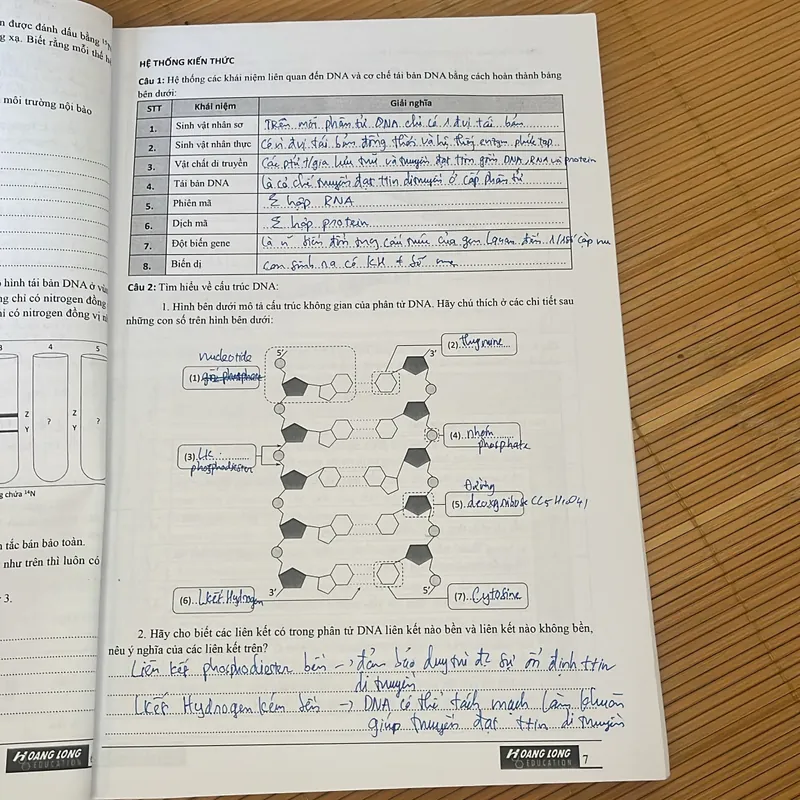 n được đánh dấu bằng
g xạ. Biết rằng mỗi thế hệ
môi trường nội bào
hình tái bản DNA ở
ng chỉ có nitrogen đồng
có nitrogen đồng vị
3 4 5
Z ? Z ?
Y Y
g chứa ¹⁴N
tắc bán bảo toàn.
như trên thì luôn có
3.
HOANG LONG
EDUCATION
HỆ THỐNG KIẾN THỨC
Câu 1: Hệ thống các khái niệm liên quan đến DNA và cơ chế tái bản DNA bằng cách hoàn thành bảng
bên dưới:
STT Khái niệm Giải nghĩa
1. Sinh vật nhân sơ Trên mỗi phân tử DNA chỉ có 1 đvị tái bản
2. Sinh vật nhân thực Có đvị tái bản đồng thời và hệ thống enzym phức tạp
3. Vật chất di truyền Các ptử t/gia lưu trữ và truyền đạt ttin gồm DNA, RNA và protein
4. Tái bản DNA là cơ chế truyền đạt ttin di truyền ở cấp phân tử
5. Phiên mã Σ hợp RNA
6. Dịch mã Σ hợp protein
7. Đột biến gene là biến đổi trong cấu trúc của gen (quan đến 1/1 số cặp nu
8. Biến dị con sinh ra có KH ≠ bố mẹ
Câu 2: Tìm hiểu về cấu trúc DNA:
1. Hình bên dưới mô tả cấu trúc không gian của phân tử DNA. Hãy chú thích ở các chi tiết sau
những con số trên hình bên dưới:
nucleotide
(1)
5'
3'
(2) thymine
(3) LK
phosphodiester
(4) nhóm
phosphate
Đường
(5) deoxyribose (C5H10O4)
(6) Lkết Hydrogen
3'
5'
(7) Cytosine
2. Hãy cho biết các liên kết có trong phân tử DNA liên kết nào bền và liên kết nào không bền,
nêu ý nghĩa của các liên kết trên?
Liên kết phosphodiester bền → đảm bảo duy trì sự ổn định ttin
di truyền
Lkết Hydrogen kém bền → DNA có thể tách mạch làm khuôn
giúp truyền đạt ttin di truyền
HOANG LONG
EDUCATION
7